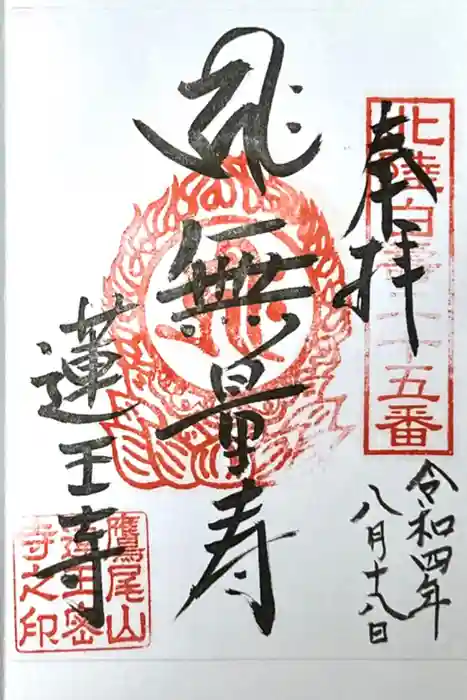 奉拝
北陸白寿
十五番
令和四年
八月十八日
無量寿
蓮王寺
鷹尾山
蓮王密
寺之印